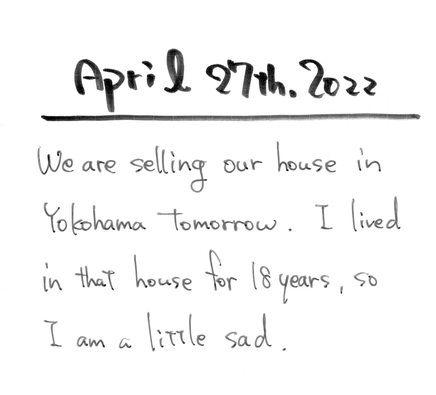 April 27th. 2022
We are selling our house in
Yokohama tomorrow. I lived
in that house for 18 years, so
I am a little sad.